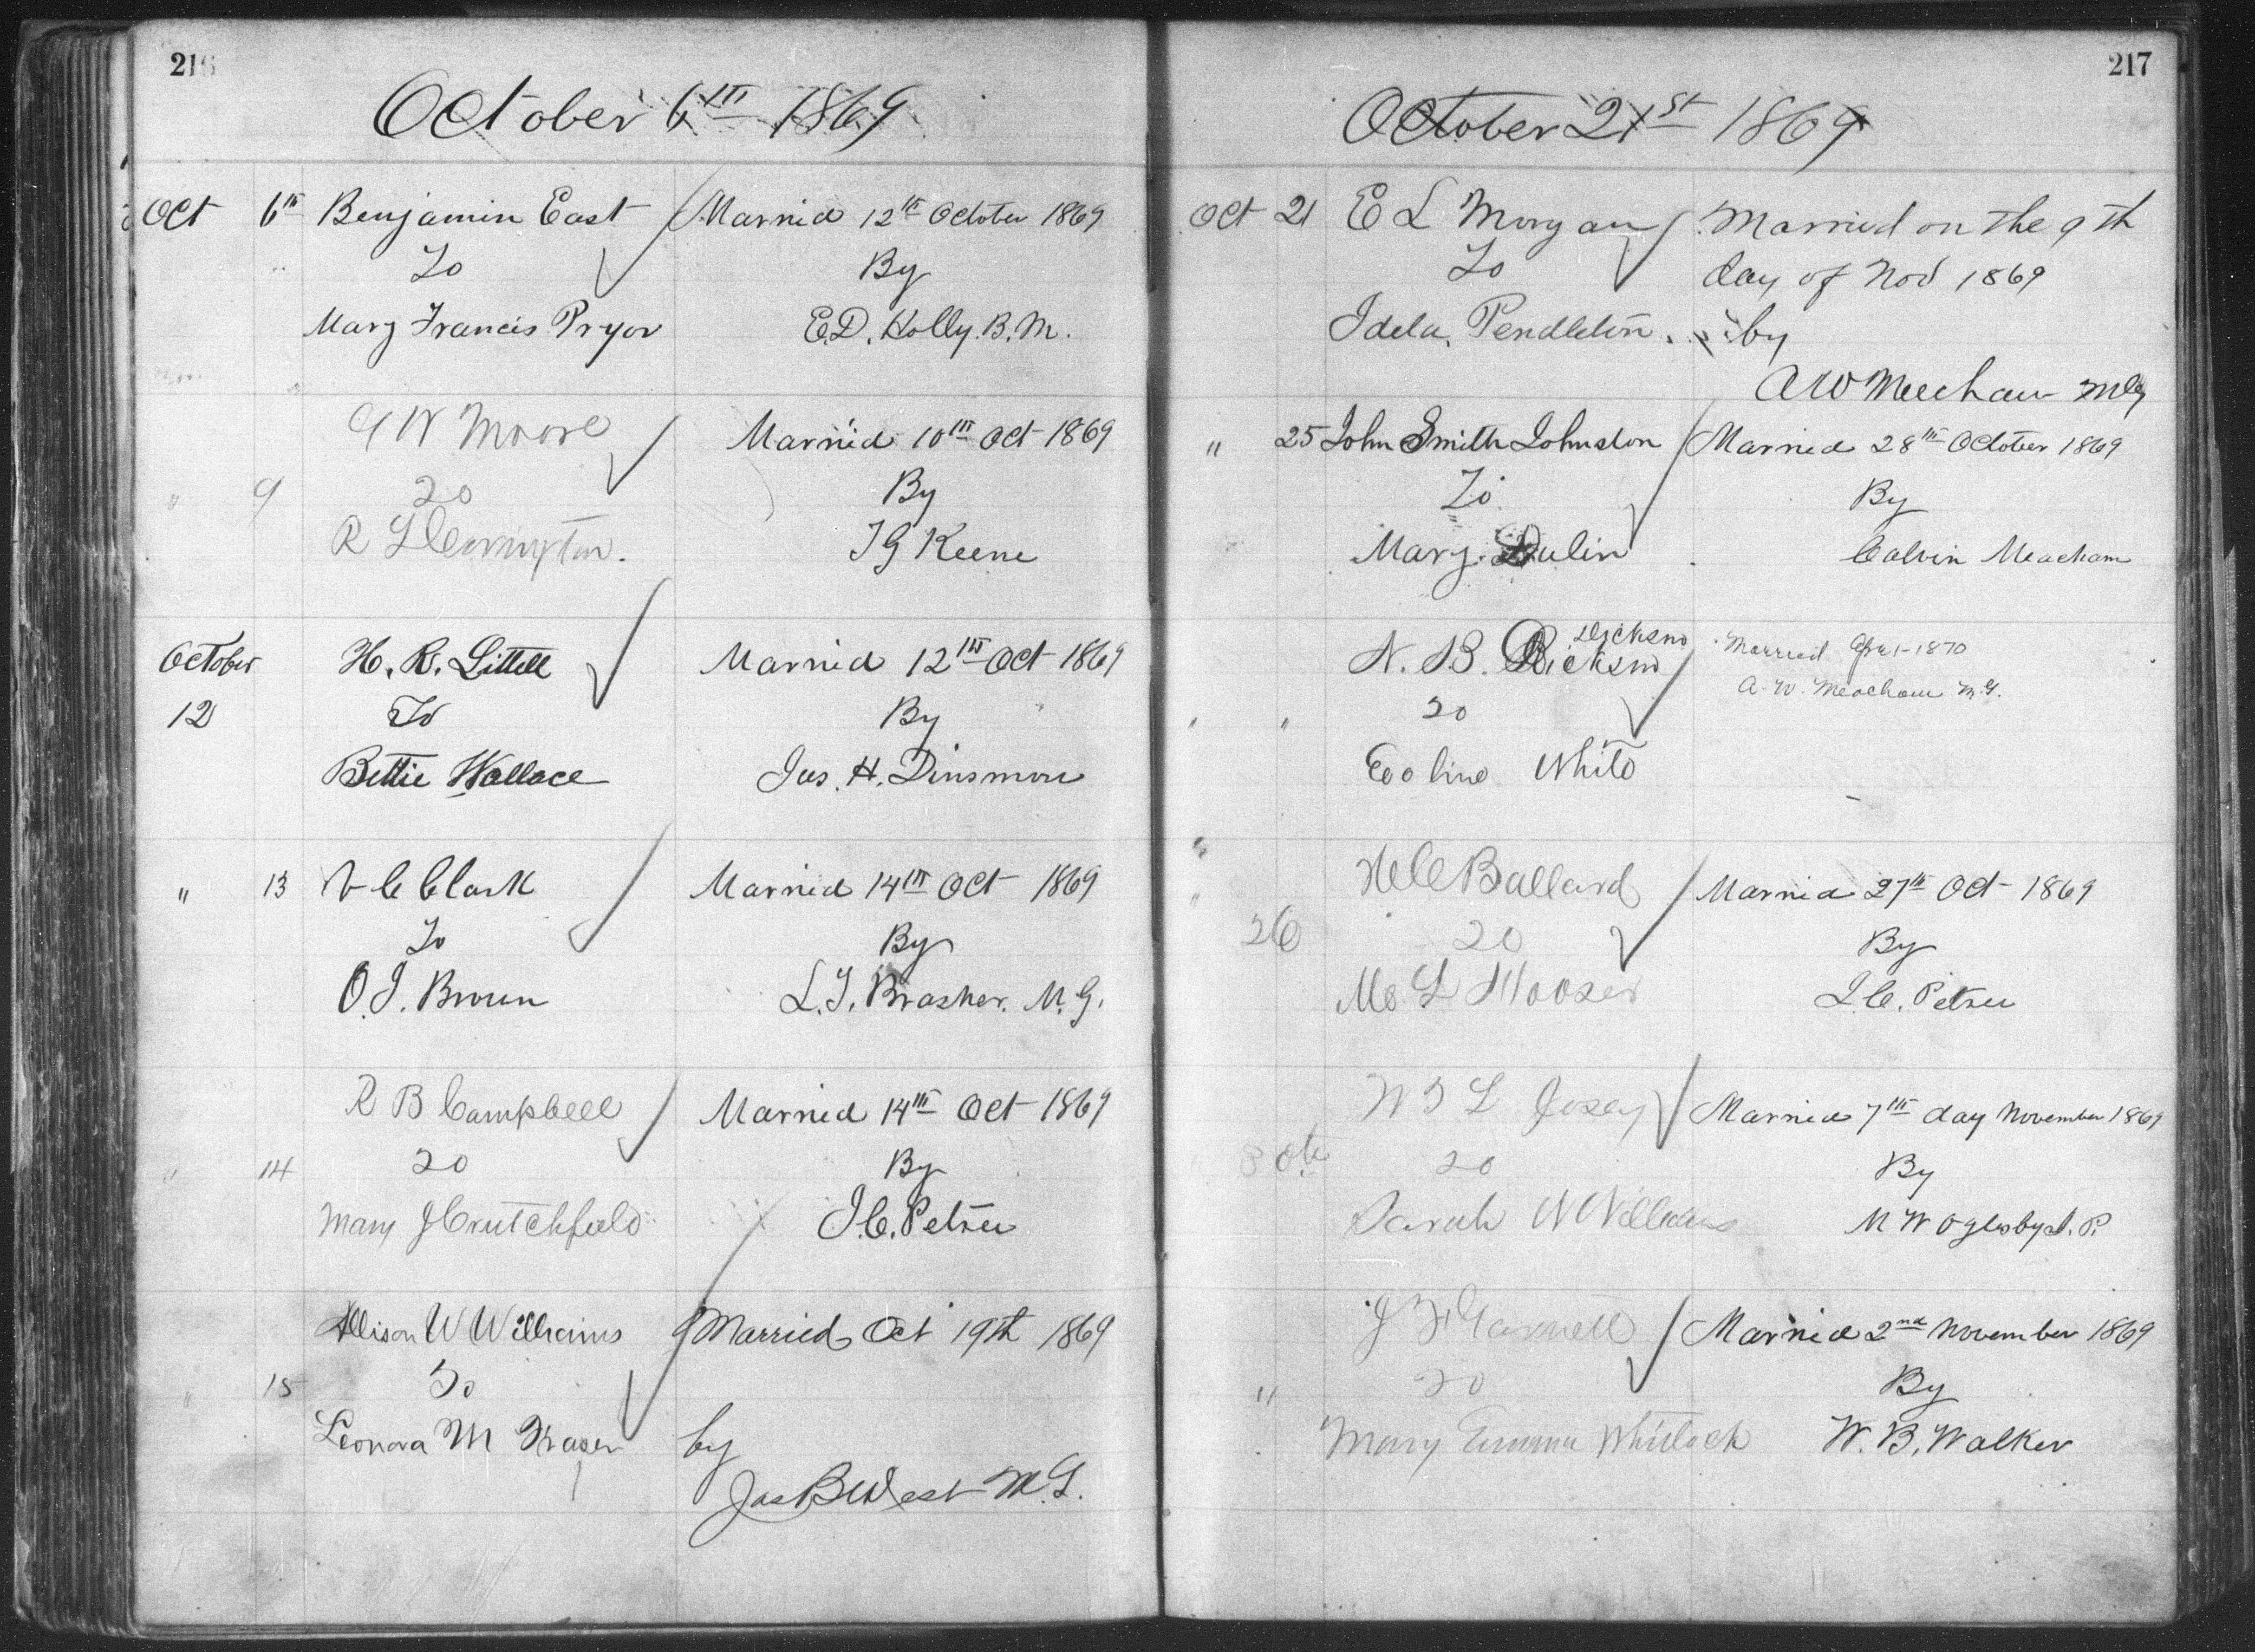 216
October 6th 1869
Oct 6th Benjamin East Married 12th October 1869
" To By
Mary Francis Pryor E.D. Holly. B.M.
G W Moore Married 10th Oct 1869
" 9 To By
R L T G Keene
October H. R. Littell Married 12th Oct 1869
12 To By
Bettie Wallace Jas. H. Dinsmore
" 13 V C Clark Married 14th Oct 1869
To By
O. J. Brown L. T. Brasher. M. G.
R B Campbell Married 14th Oct 1869
" 14 To By
Mary J Crutchfield J. C. Petree
Allison W Williams Married Oct 19th 1869
" 15 To
Leonora M Fraser by
Jas B West M. G.
217
October 21st 1869
Oct 21 E L Morgan Married on the 9th
To day of Nov 1869
Idela Pendleton. by
A W Meecham
" 25 John Smith Johnston Married 28th October 1869
To By
Mary Dulin Calvin Meacham
N. B. Dickson Married 1870
A. W. Meacham M. G.
" " To
Eveline White
Ballard Married 27th Oct 1869
26 To By
L Hooser J. C. Petree
W T L Josey Married 7th day November 1869
30th To By
Sarah W Williams M W Oglesby J. P.
J F Garnett Married 2nd November 1869
" To By
Mary Emma Whitlock W. B. Walker